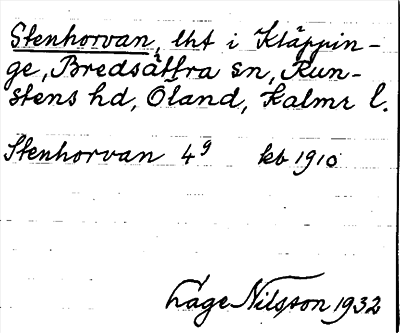 Stenhorvan, lht i Kläppin-
ge, Bredsättra sn, Run-
stens hd, Öland, Kalmr l.
Stenhorvan 4g kb 1910
Låge Nilsson 1932